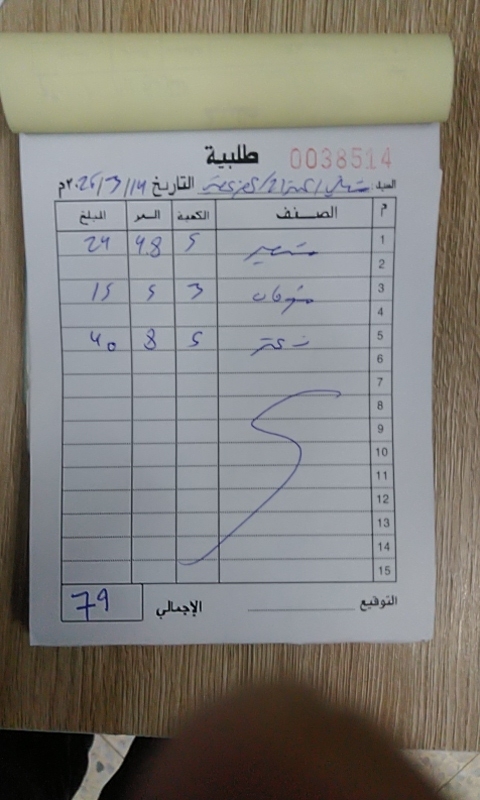 طلبية 0038514
السيد: التاريخ 14/3/2026م
م الصنف الكمية السعر المبلغ
1 شعير 5 4.8 24
2
3 شوفان 3 5 15
4
5 زعتر 5 8 40
6
7
8
9
10
11
12
13
14
15
التوقيع الإجمالي 79